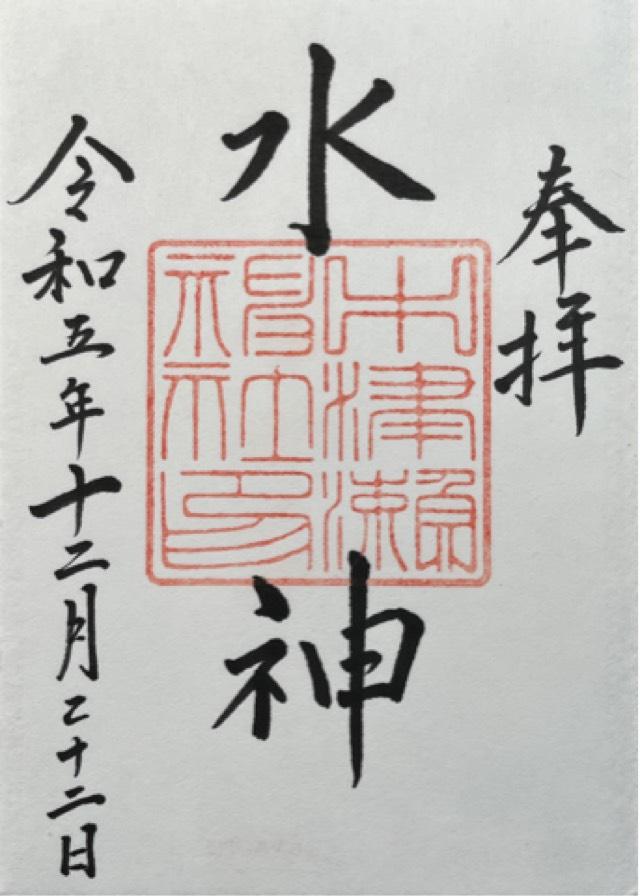 奉拝
水神
中津瀬
神社印
令和五年十二月二十二日